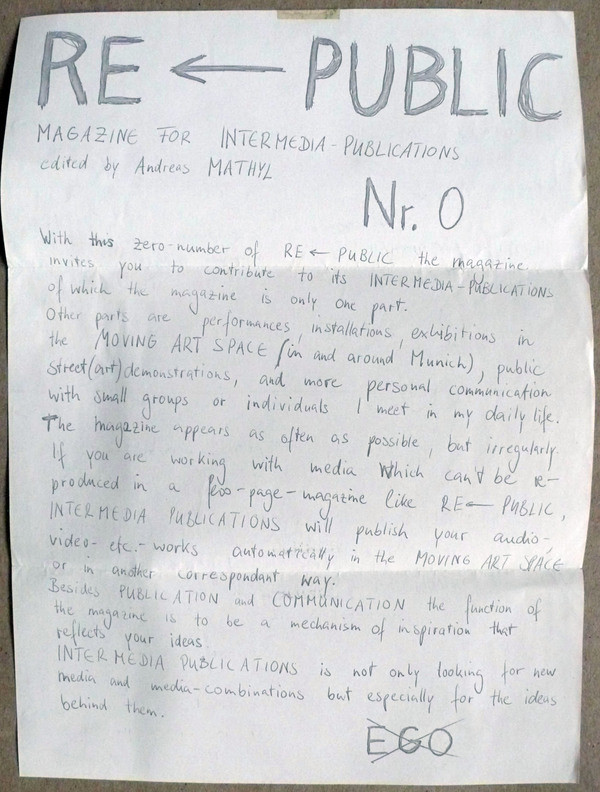 RE ← PUBLIC
MAGAZINE FOR INTERMEDIA-PUBLICATIONS
edited by Andreas MATHYL
Nr. 0
With this zero-number of RE ← PUBLIC the magazine
invites you to contribute to its INTERMEDIA-PUBLICATIONS
of which the magazine is only one part.
Other parts are performances, installations, exhibitions in
the MOVING ART SPACE (in and around Munich), public
street(art)demonstrations, and more personal communication
with small groups or individuals I meet in my daily life.
The magazine appears as often as possible, but irregularly.
If you are working with media which can't be re-
produced in a -page-magazine like RE ← PUBLIC,
INTERMEDIA PUBLICATIONS will publish your audio-
video- etc.- works automatically in the MOVING ART SPACE
or in another correspondant way.
Besides PUBLICATION and COMMUNICATION the function of
the magazine is to be a mechanism of inspiration that
reflects your ideas.
INTERMEDIA PUBLICATIONS is not only looking for new
media and media-combinations but especially for the ideas
behind them.
EGO